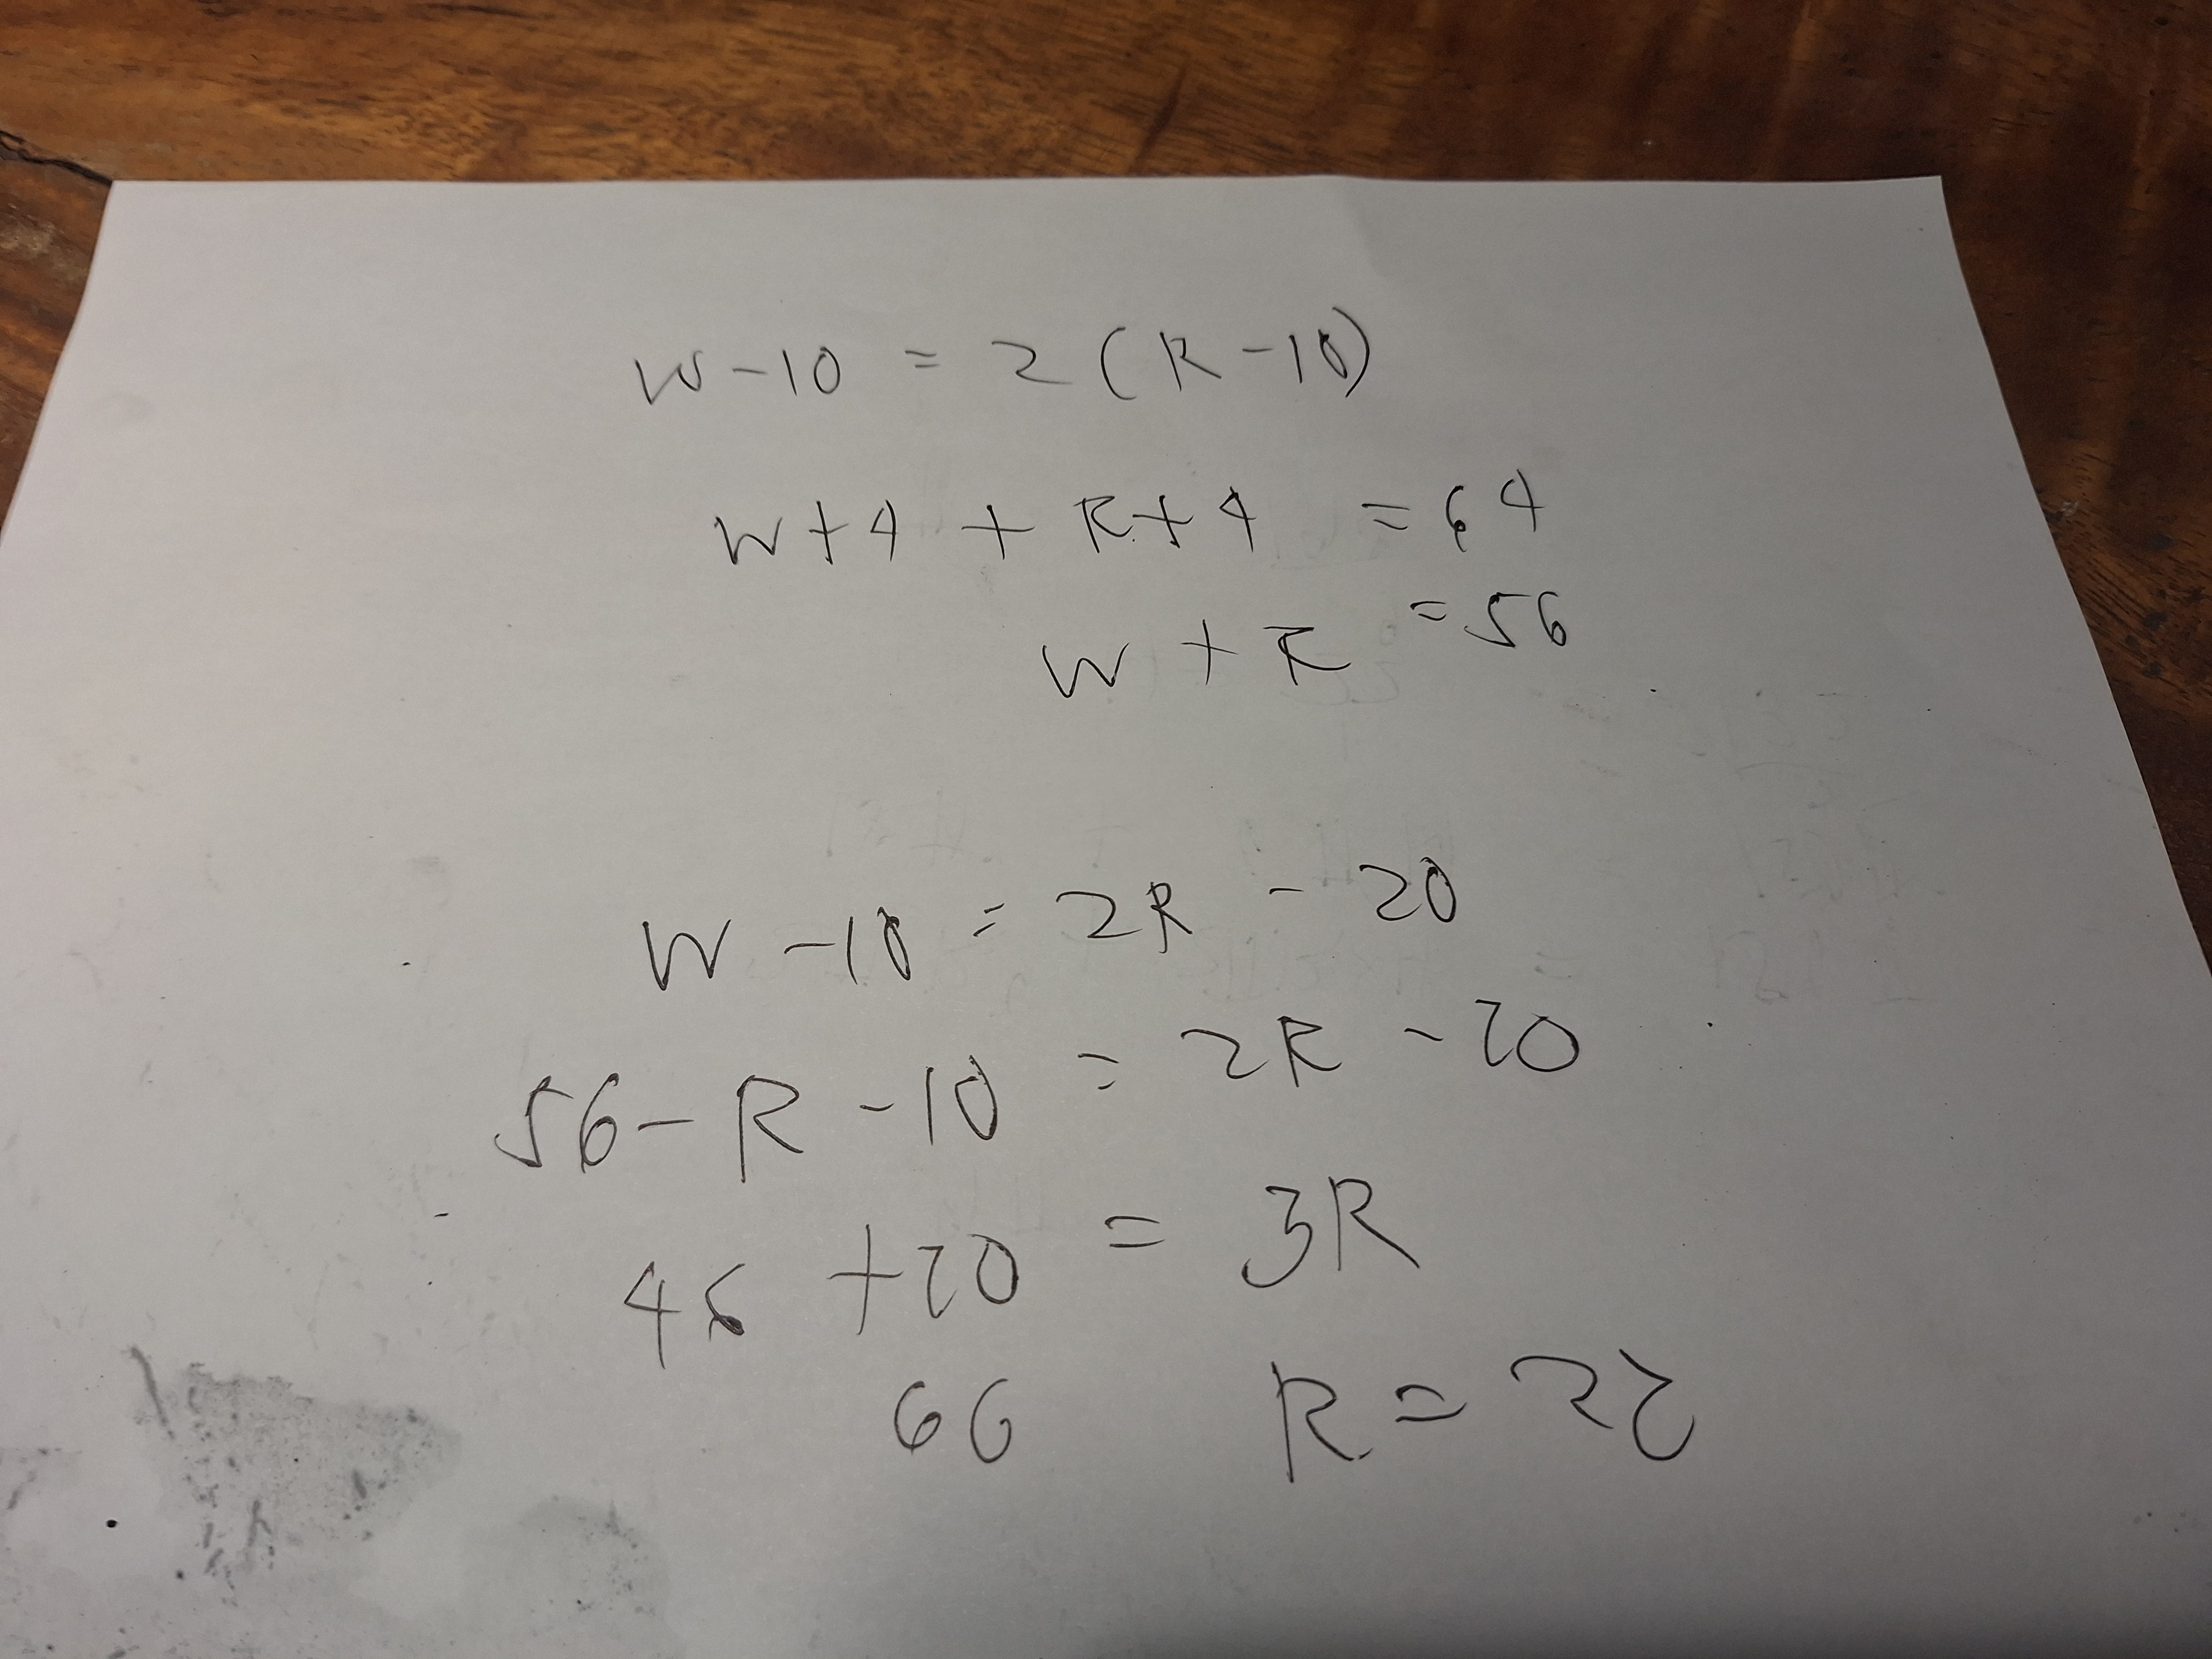 W-10 = 2(R-10)
W+4 + R+4 = 64
W + R = 56
W -10 = 2R - 20
56 - R -10 = 2R - 20
46 +20 = 3R
66 R = 22